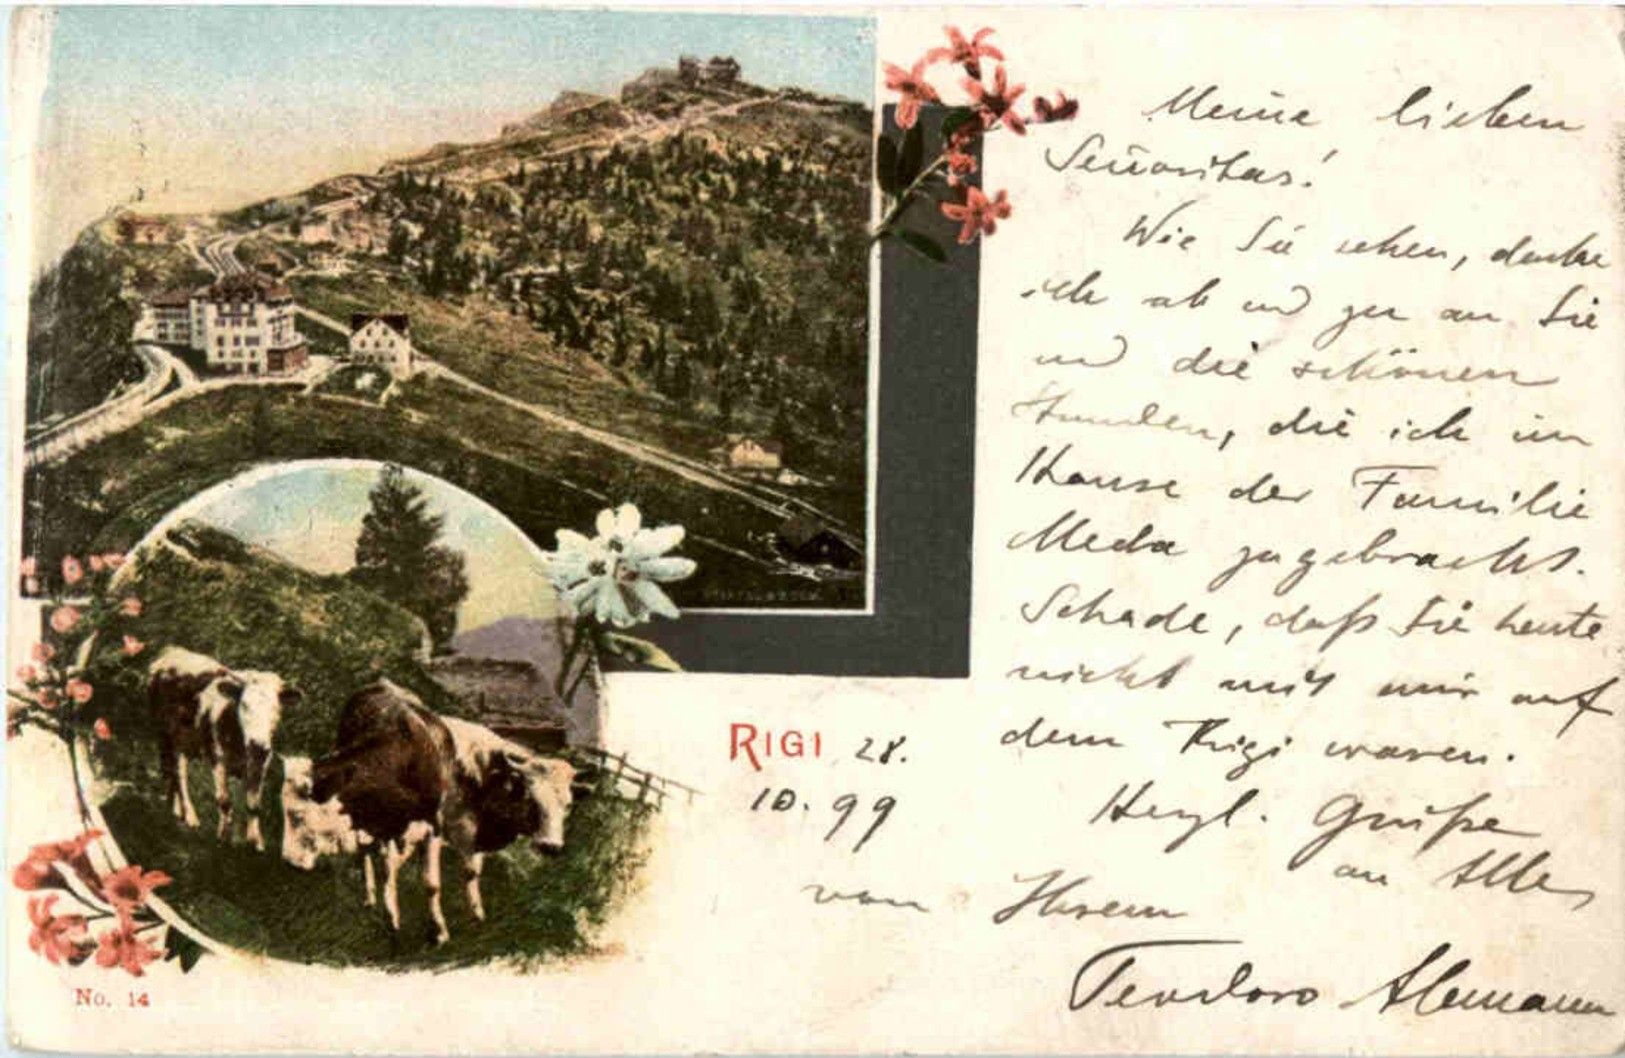 Meine lieben
Señoritas!
Wie Sie sehen, denke
ich ab und zu an Sie
und die schönen
Stunden, die ich im
Hause der Familie
Meda zugebracht.
Schade, daß Sie heute
nicht mit mir auf
dem Rigi waren.
Herzl. Grüße
an Alle
von Ihrem
Teodoro Alemann
RIGI 28.
10. 99
No. 14